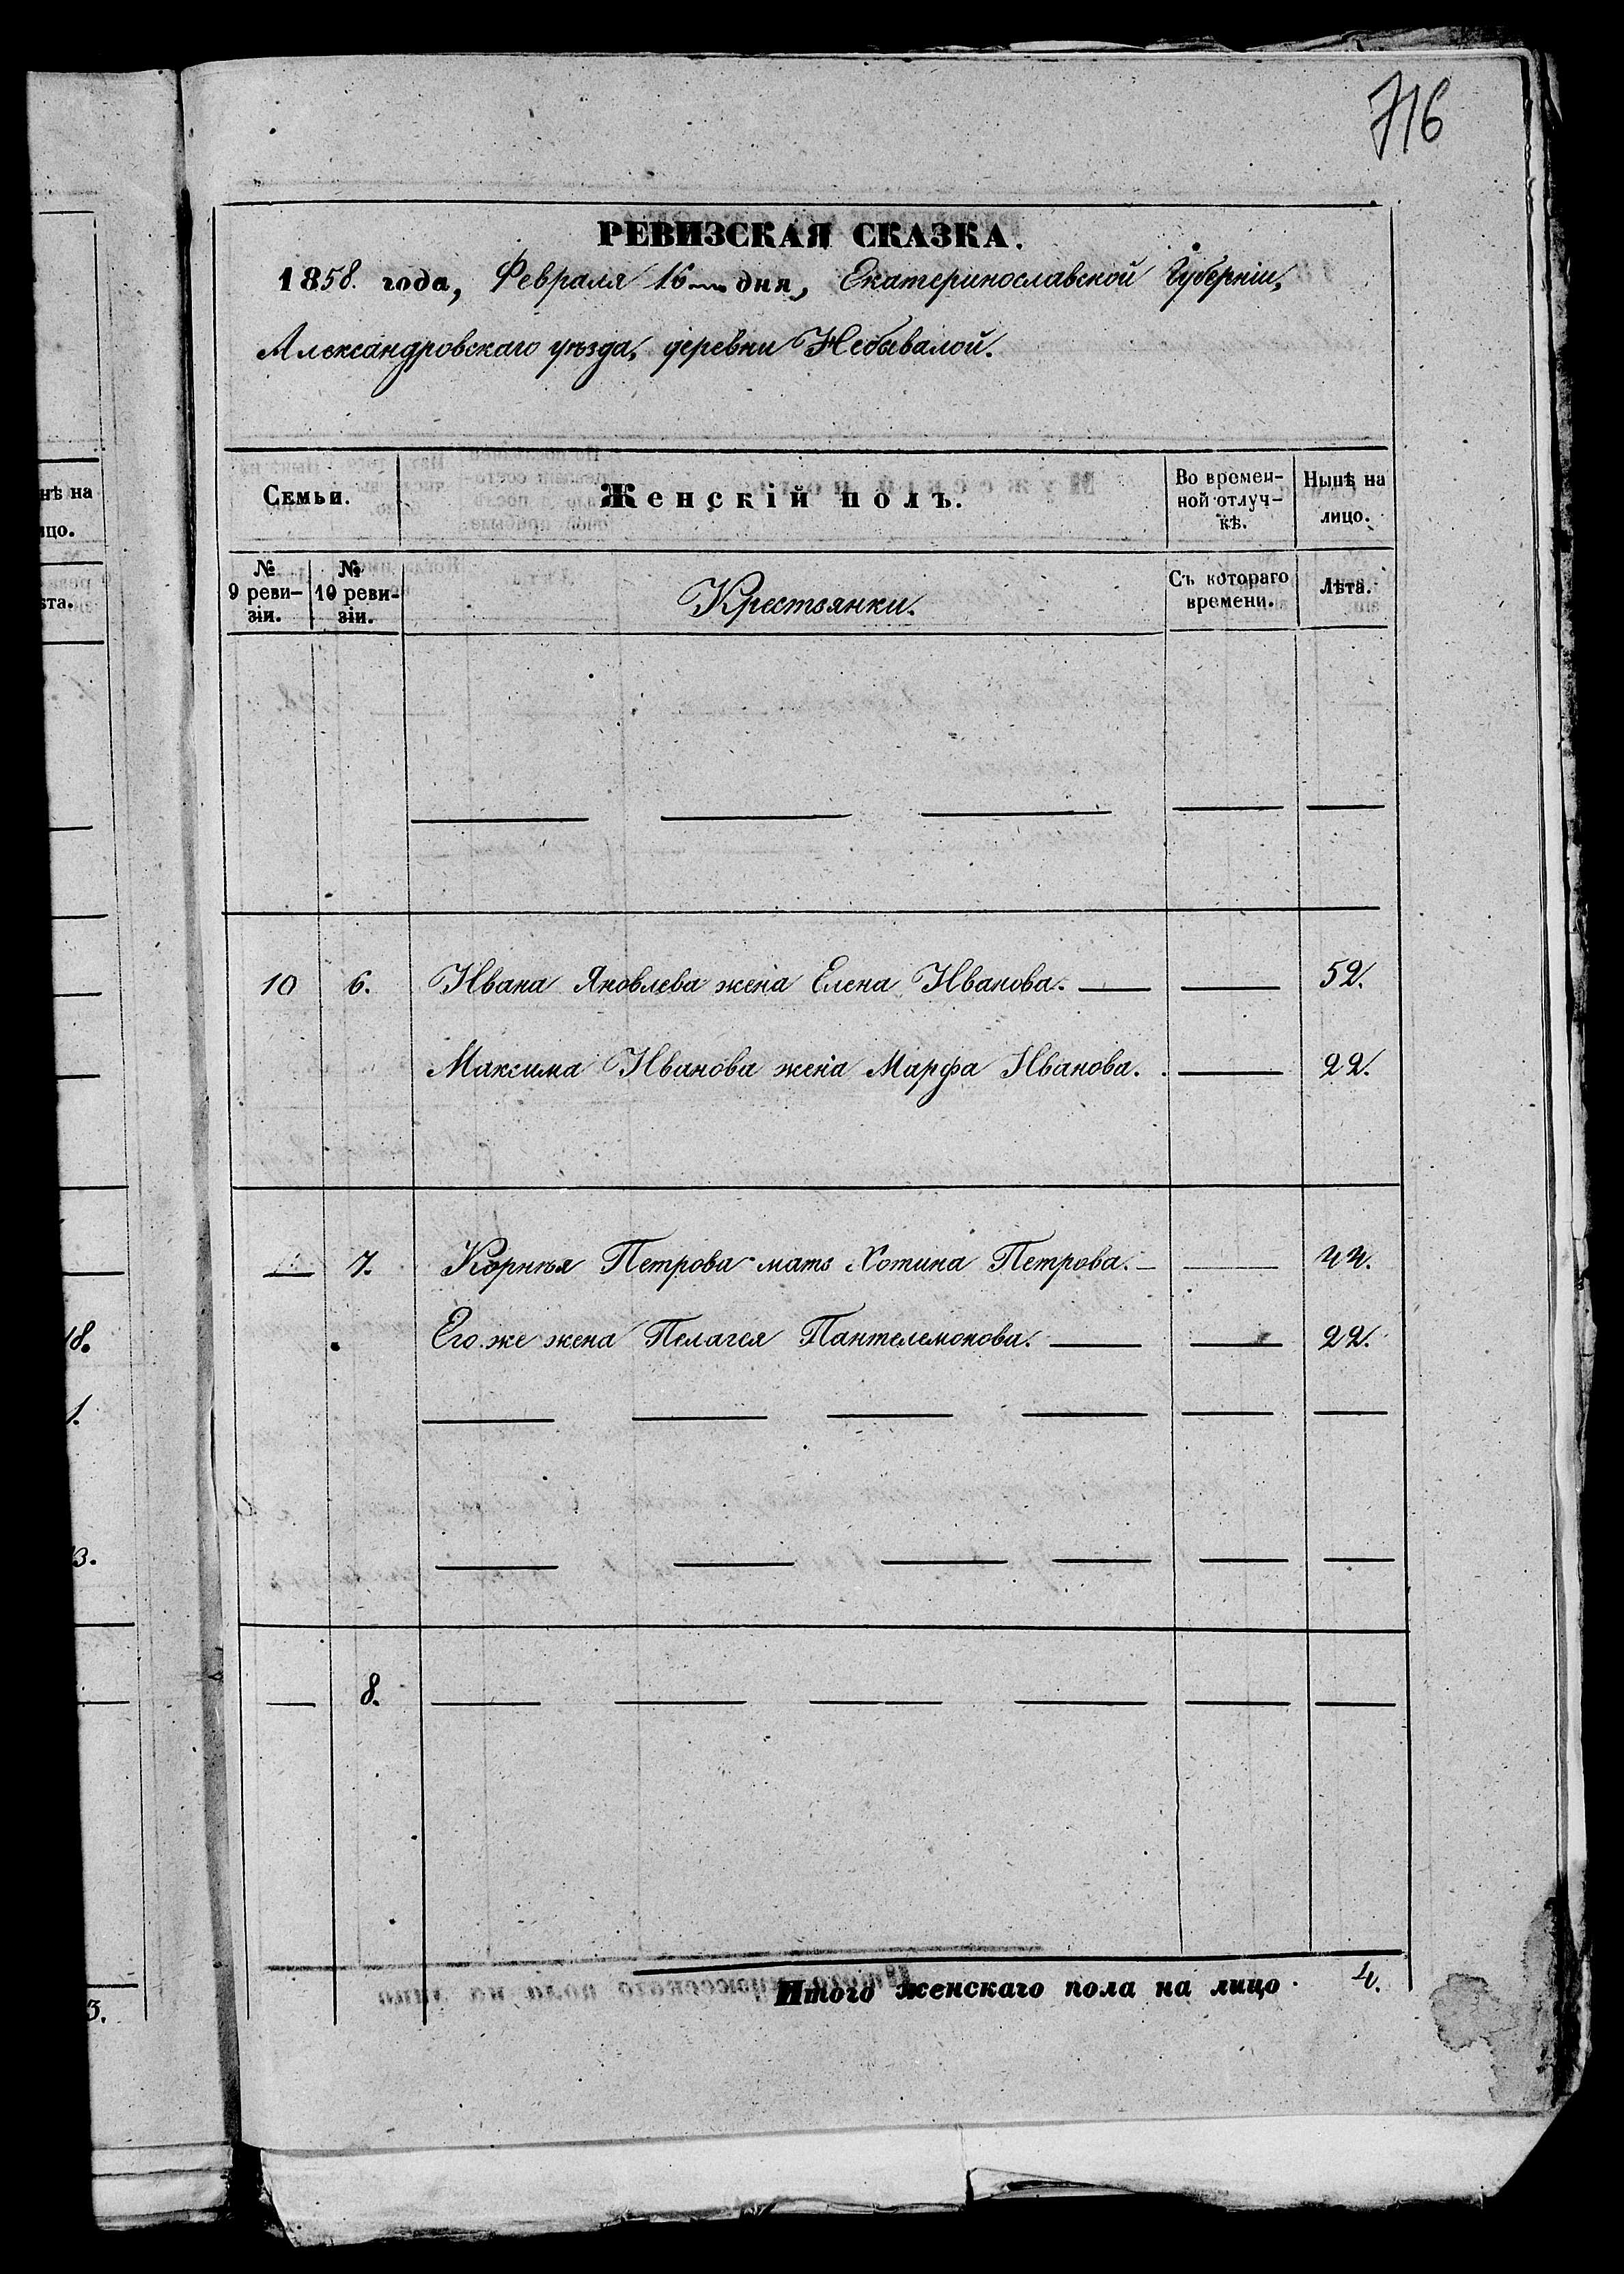 716
РЕВИЗСКАЯ СКАЗКА.
1858. года, Февраля 16 дня, Екатеринославской Губерніи,
Александровскаго уѣзда, деревни Небывалой.
Семьи.
Женскій полъ.
Во времен-
ной отлуч-
кѣ.
Нынѣ на
лицо.
№
9 реви-
зіи.
№
10 реви-
зіи.
Крестьянки.
Съ котораго
времени.
Лѣта.
10 6. Ивана Яковлева жена Елена Иванова. — — 52.
Максима Иванова жена Марфа Иванова. — 22.
— 7. Корнѣя Петрова мать Хотина Петрова. — — 44.
Его же жена Пелагея Пантелемонова. — — 22.
— 8. — — — — — —
Итого женскаго пола на лицо. 4.
нѣ на
цо.
ѣта.
18.
1.
3.
3.